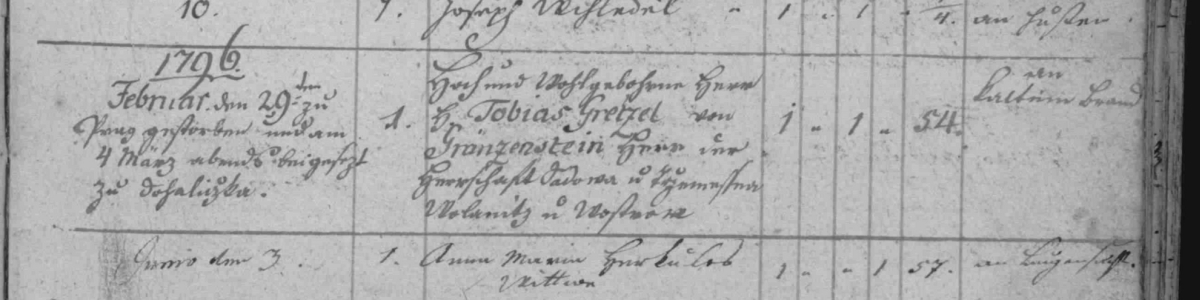 10. 1. Joseph 1 " 1 " 1/4. an Husten.
1796
Februar. den 29ten zu
Prag gestorben und am
4 März abends beigesezt
zu Dohalizka.
1. Hoch und Wohlgebohrne Herr
H. Tobias Gretzel von
Gränzenstein Herr der
Herrschaft Sadowa u
Wolanitz u Wostrow
1 " 1 " 54.
an
kaltem Brand
Junio den 3. 1. Anna Maria Herkules
Wittwe
1 " " 1 57. an